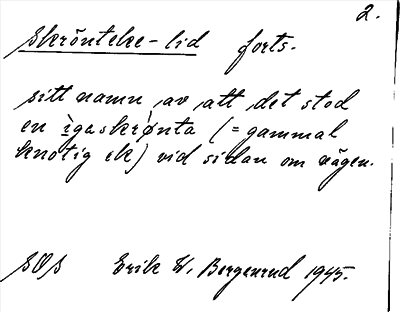 2.
Skröneke-lid forts.
sitt namn av att det stod
en igaskrønta (= gammal
knotig ek) vid sidan om vägen.
SOS Erik W. Bergenrud 1945.